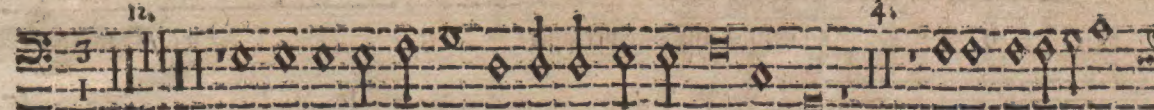 12. 4.
3
1